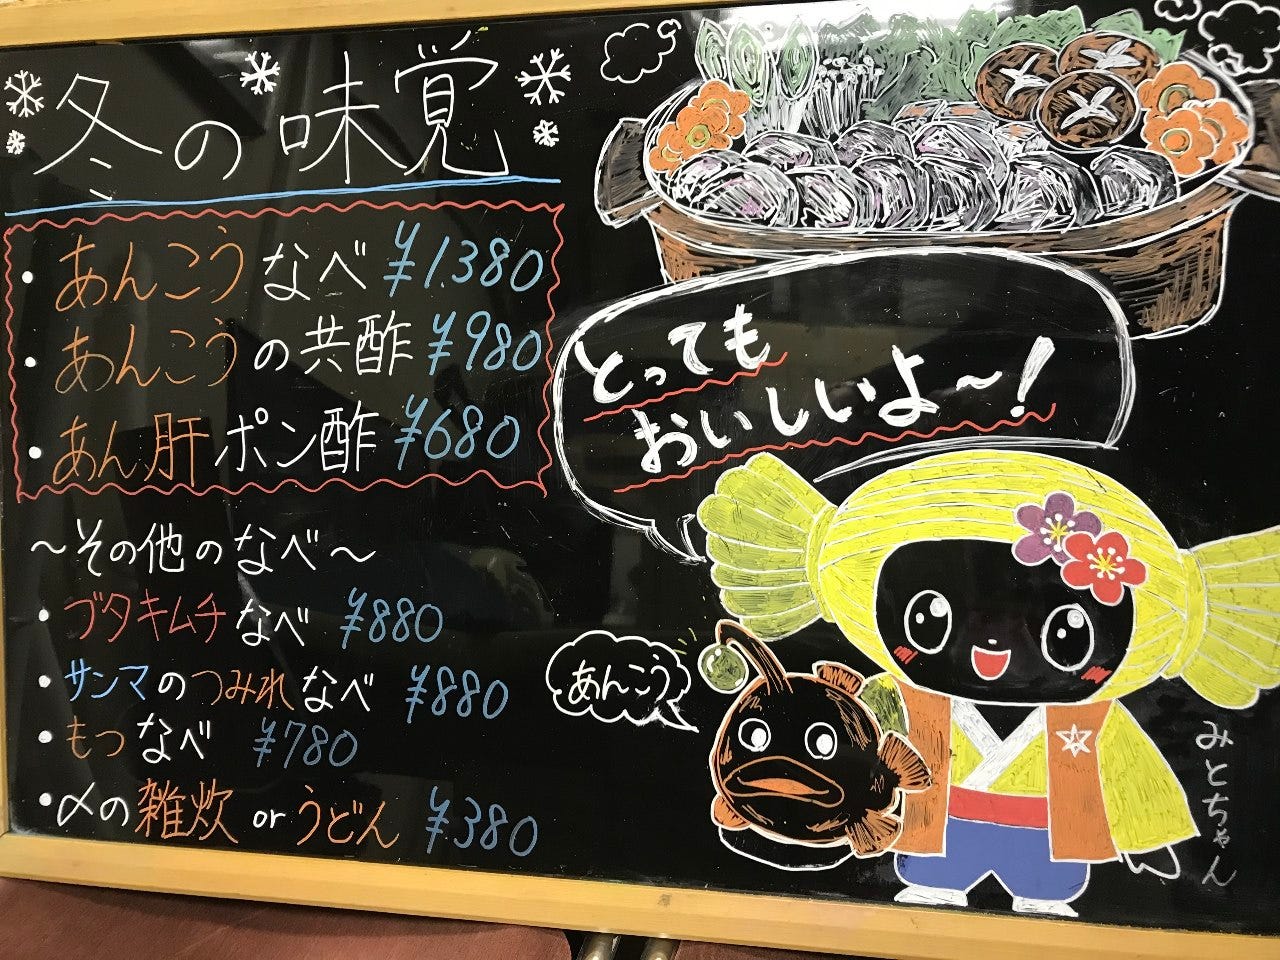 冬の味覚
・あんこうなべ ¥1,380
・あんこうの共酢 ¥980
・あん肝ポン酢 ¥680
〜その他のなべ〜
・ブタキムチなべ ¥880
・サンマのつみれなべ ¥880
・もつなべ ¥780
・〆の雑炊 or うどん ¥380
とっても
おいしいよ〜!
あんこう
みとちゃん